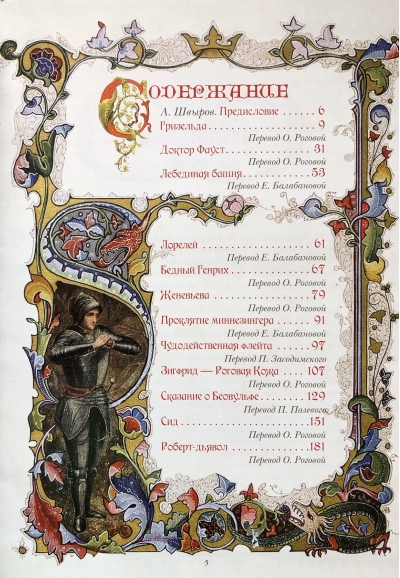 Содержание
А. Швыров. Предисловие ...... 6
Гризельда ................ 9
Перевод О. Роговой
Доктор Фауст ............. 31
Перевод О. Роговой
Лебединая башня .......... 53
Перевод Е. Балабановой
Лорелей .................. 61
Перевод Е. Балабановой
Бедный Генрих ............ 67
Перевод О. Роговой
Женевьева ................ 79
Перевод О. Роговой
Проклятие миннезингера ... 91
Перевод Е. Балабановой
Чудодейственная флейта ... 97
Перевод П. Засодимского
Зигфрид — Роговая Кожа ... 107
Перевод О. Роговой
Сказание о Беовульфе ..... 129
Перевод П. Полевого
Сид ...................... 151
Перевод О. Роговой
Роберт-дьявол ............ 181
Перевод О. Роговой
5